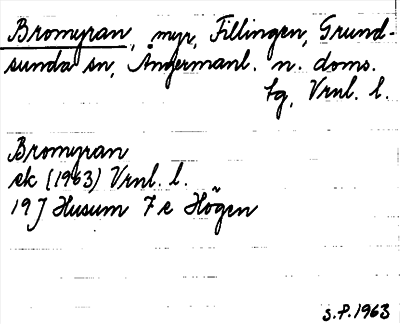 Bromyran, myr, Fillingen, Grund-
sunda sn, Ångermanl. n. doms.
tg, Vrnl. l.
Bromyran
ek (1963) Vrnl. l.
19J Husum 7e Högen
S.P. 1963